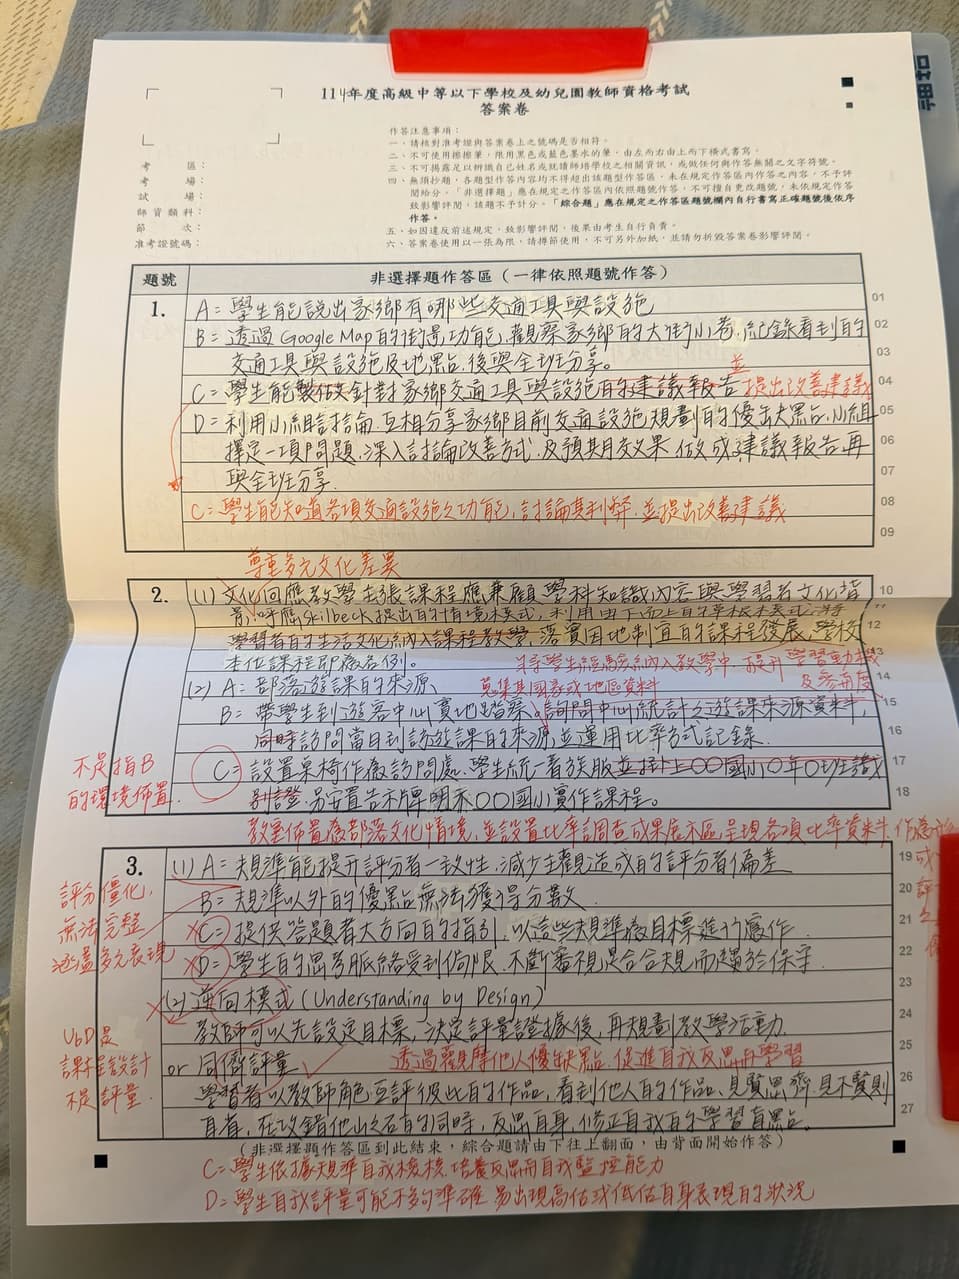 114年度高級中等以下學校及幼兒園教師資格考試
答案卷
作答注意事項：
一、請核對准考證與答案卷上之號碼是否相符。
二、不可使用擦擦筆，限用黑色或藍色墨水的筆，由左而右由上而下橫式書寫。
三、不可揭露足以辨識自己姓名或就讀師培學校之相關資訊，或做任何與作答無關之文字符號。
四、無須抄題，各題型作答內容均不得超出該題型作答區，未在規定作答區內作答之內容，不予評
閱給分。「非選擇題」應在規定之作答區內依照題號作答，不可擅自更改題號，未依規定作答
致影響評閱，該題不予計分。「綜合題」應在規定之作答區題號欄內自行書寫正確題號後依序
作答。
五、如因違反前述規定，致影響評閱，後果由考生自行負責。
六、答案卷使用以一張為限，請撙節使用，不可另外加紙，並請勿折毀答案卷影響評閱。
考區：
考場：
試場：
師資類科：
節次：
准考證號碼：
題號 非選擇題作答區（一律依照題號作答）
1. A=學生能說出家鄉有哪些交通工具與設施 01
B=透過Google Map的街景功能,觀察家鄉的大街小巷,紀錄看到的 02
交通工具與設施及地點,後與全班分享。 03
並
C=學生能製做針對家鄉交通工具與設施的建議報告 提出改善建議 04
D=利用小組討論,互相分享家鄉目前交通設施規劃的優缺點,小組 05
擇定一項問題,深入討論改善方式,及預期效果,做成建議報告再 06
與全班分享. 07
C=學生能知道各項交通設施之功能,討論其利弊,並提出改善建議 08
09
尊重多元文化差異
2. (1)文化回應教學主張課程應兼顧學科知識內容與學習者文化背 10
景,呼應Skilbeck提出的情境模式,利用由下而上的草根模式,將 11
學習者的生活文化納入課程教學,落實因地制宜的課程發展,學校 12
本位課程即為名例。 13
將學生經驗納入教學中,提升學習動機
及參與度
(2) A=部落遊課的來源、 蒐集其國家或地區資料 14
B=帶學生到遊客中心實地踏察,詢問中心統計之遊課來源資料, 15
同時訪問當日到訪遊課的來源,並運用比率方式記錄. 16
C=設置桌椅作為訪問處,學生統一著族服並掛上〇〇國小〇年〇班識 17
別證,另安置告示牌明示〇〇國小實作課程。 18
不是指B
的環境佈置.
教室佈置為部落文化情境,並設置比率調查成果展示區,呈現各項比率資料,作為
3. (1) A=規準能提升評分者一致性,減少主觀造成的評分者偏差 19
B=規準以外的優點無法獲得分數 20
C=提供答題者大方向的指引,以這些規準為目標進行應作 21
D=學生的思考脈絡受到侷限,不斷審視是否合規而趨於保守. 22
(2)逆向模式(Understanding by Design) 23
教師可以先設定目標,決定評量證據後,再規劃教學活動. 24
or 同儕評量 透過觀摩他人優缺點,促進自我反思再學習 25
學習者以教師角色評彼此的作品,看到他人的作品,見賢思齊,見不賢則 26
自省,在攻錯他山之石的同時,反思自身,修正自我的學習盲點。 27
評分僵化,
無法完整
涵蓋多元表現
UbD是
課程設計
不是評量.
(非選擇題作答區到此結束，綜合題請由下往上翻面，由背面開始作答)
C=學生依據規準自我檢核,培養反思和自我監控能力
D=學生自我評量可能不夠準確,易出現高估或低估自身表現的狀況